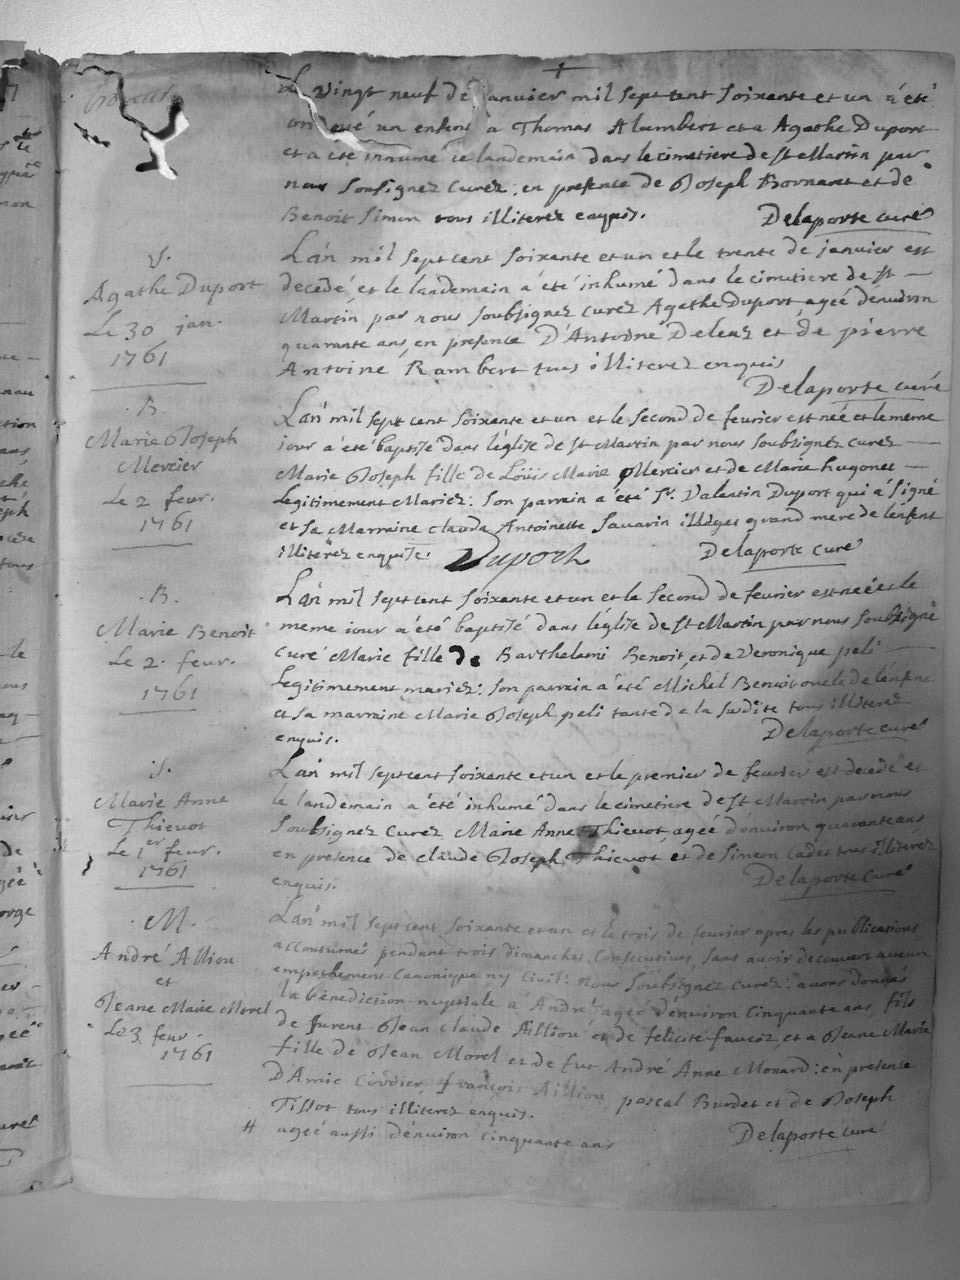 Le vingt neuf de janvier mil sept cent soixante et un a été
un enfent à Thomas Alumbert et a Agathe Duport
et a été innumé le landemain dans le cimetiere de st Martin par
nous soussignez curez, en presence de Joseph Bornaret et de
Benoit Simon tous illiterez enquis. Delaporte curé
S.
Agathe Duport
Le 30 jan.
1761
Lan mil sept cent soixante et un et le trente de janvier est
decedé et le landemain a été inhumé dans le cimetiere de st
Martin par nous soubsignez curez Agathe Duport ageé denviron
quarante ans, en presence D'Antoine Deleaz et de pierre
Antoine Rambert tous illiterez enquis
Delaporte curé
B.
Marie Joseph
Mercier
Le 2 feur.
1761
Lan mil sept cent soixante et un et le second de feurier est neé et le meme
iour a été baptisé dans leglise de st Martin par nous soubsignez curez
Marie Joseph fille de Loüis Marie Mercier et de Marie hugonet
Legitimement Mariez: son parrain a été sr. Valentin Duport qui a signé
et sa Marraine clauda Antoinette Sauarin grand mere de lenfent
illiterez enquise. Duport Delaporte curé
B.
Marie Benoit
Le 2. feur.
1761
Lan mil sept cent soixante et un et le second de feurier est neé et le
meme iour a été baptisé dans léglise de st Martin par nous soubsigné
curé Marie fille de Barthelami Benoit, et de Veronique peli
Legitimement mariez: son parrain a été Michel Benoit oncle de lenfent
et sa marraine Marie Joseph peli tante de la susdite tous illiterez
enquis. Delaporte curé
S.
Marie Anne
Thieuot
Le 1er feur.
1761
Lan mil sept cent soixante et un et le premier de feurier est decedé et
le landemain a été inhumé dans le cimetiere de st Martin par nous
Soubsignez curez Marie Anne Thieuot, ageé denuiron quarante ans
en presence de claude Joseph Thieuot, et de Simeon Cadet tous illiterez
enquis. Delaporte curé
M.
André Alliou
et
Jeane Marie Morel
Le 3 feur.
1761
Lan mil sept cent soixante et un et le trois de feurier apres les publications
accoutumés pendant trois dimanches consecutives, sans avoir decouuert aucun
empeschement canonique ny ciuil: nous soubsignez curez: auons donnés
la bénediction nuptiale a André ageé denuiron cinquante ans, fils
de furent Jean claude Alliou et de felicite faucoz, et a Jeane Marie
fille de Jean Morel et de fut André Anne Monard: en presence
D'Amie Cordier françois Alliou, pascal Burdet et de Joseph
Tissot tous illiterez enquis.
# ageé aussi denuiron cinquante ans Delaporte curé